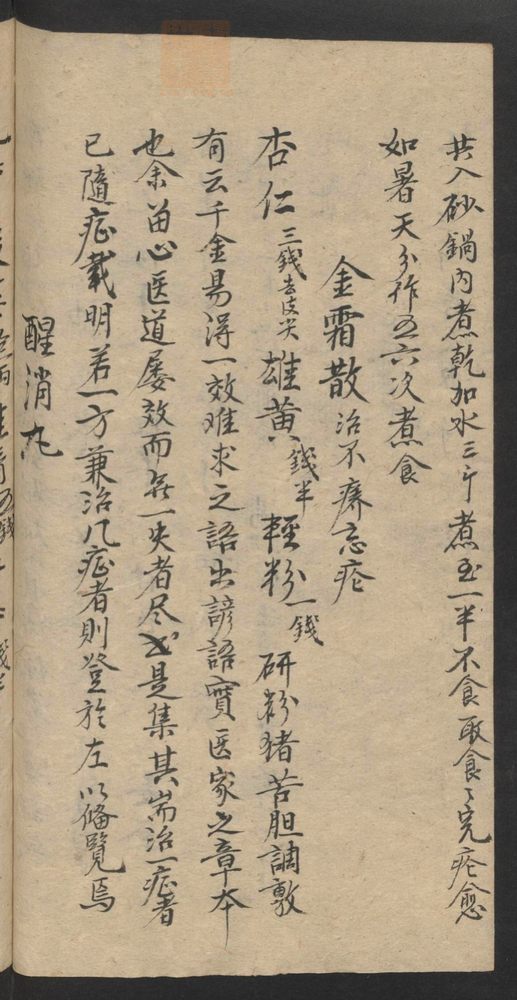 共入砂鍋内煮乾加水三斤煮至一半不食取食〻完疮愈
如暑天分作五六次煮食
金霜散治不痳忘疮
杏仁三錢去皮尖雄黄錢半輕粉一錢研粉猪苦胆調敷
有云千金易得一效难求之語出諺語實医家之章本
也余留心医道屡效而無一失者尽是集其耑治一症者
已隨症載明若一方兼治几症者則登於左以俻覽焉
醒消丸